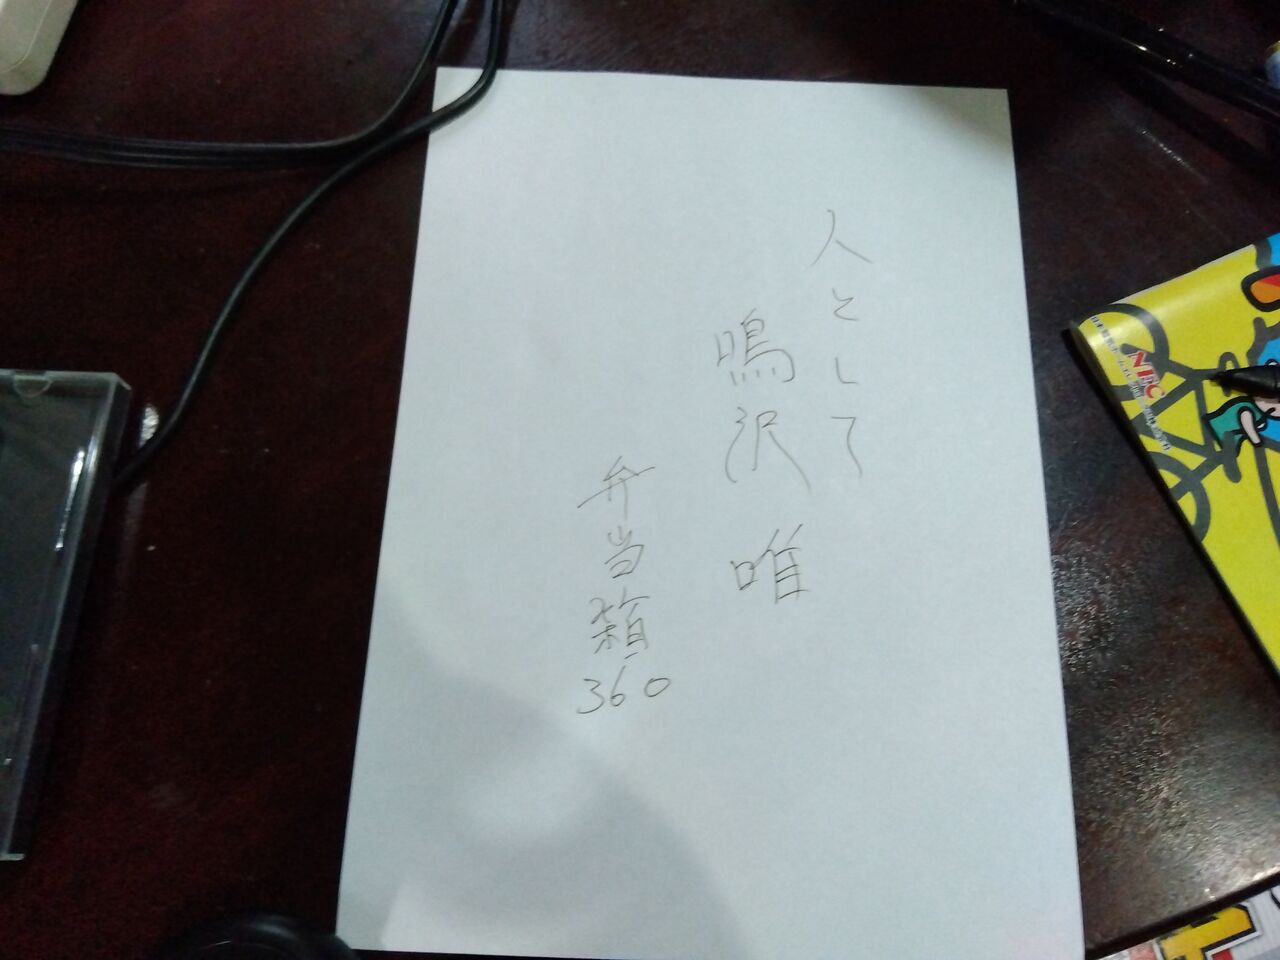 人として
鳴沢 唯
弁当箱
360
NBC